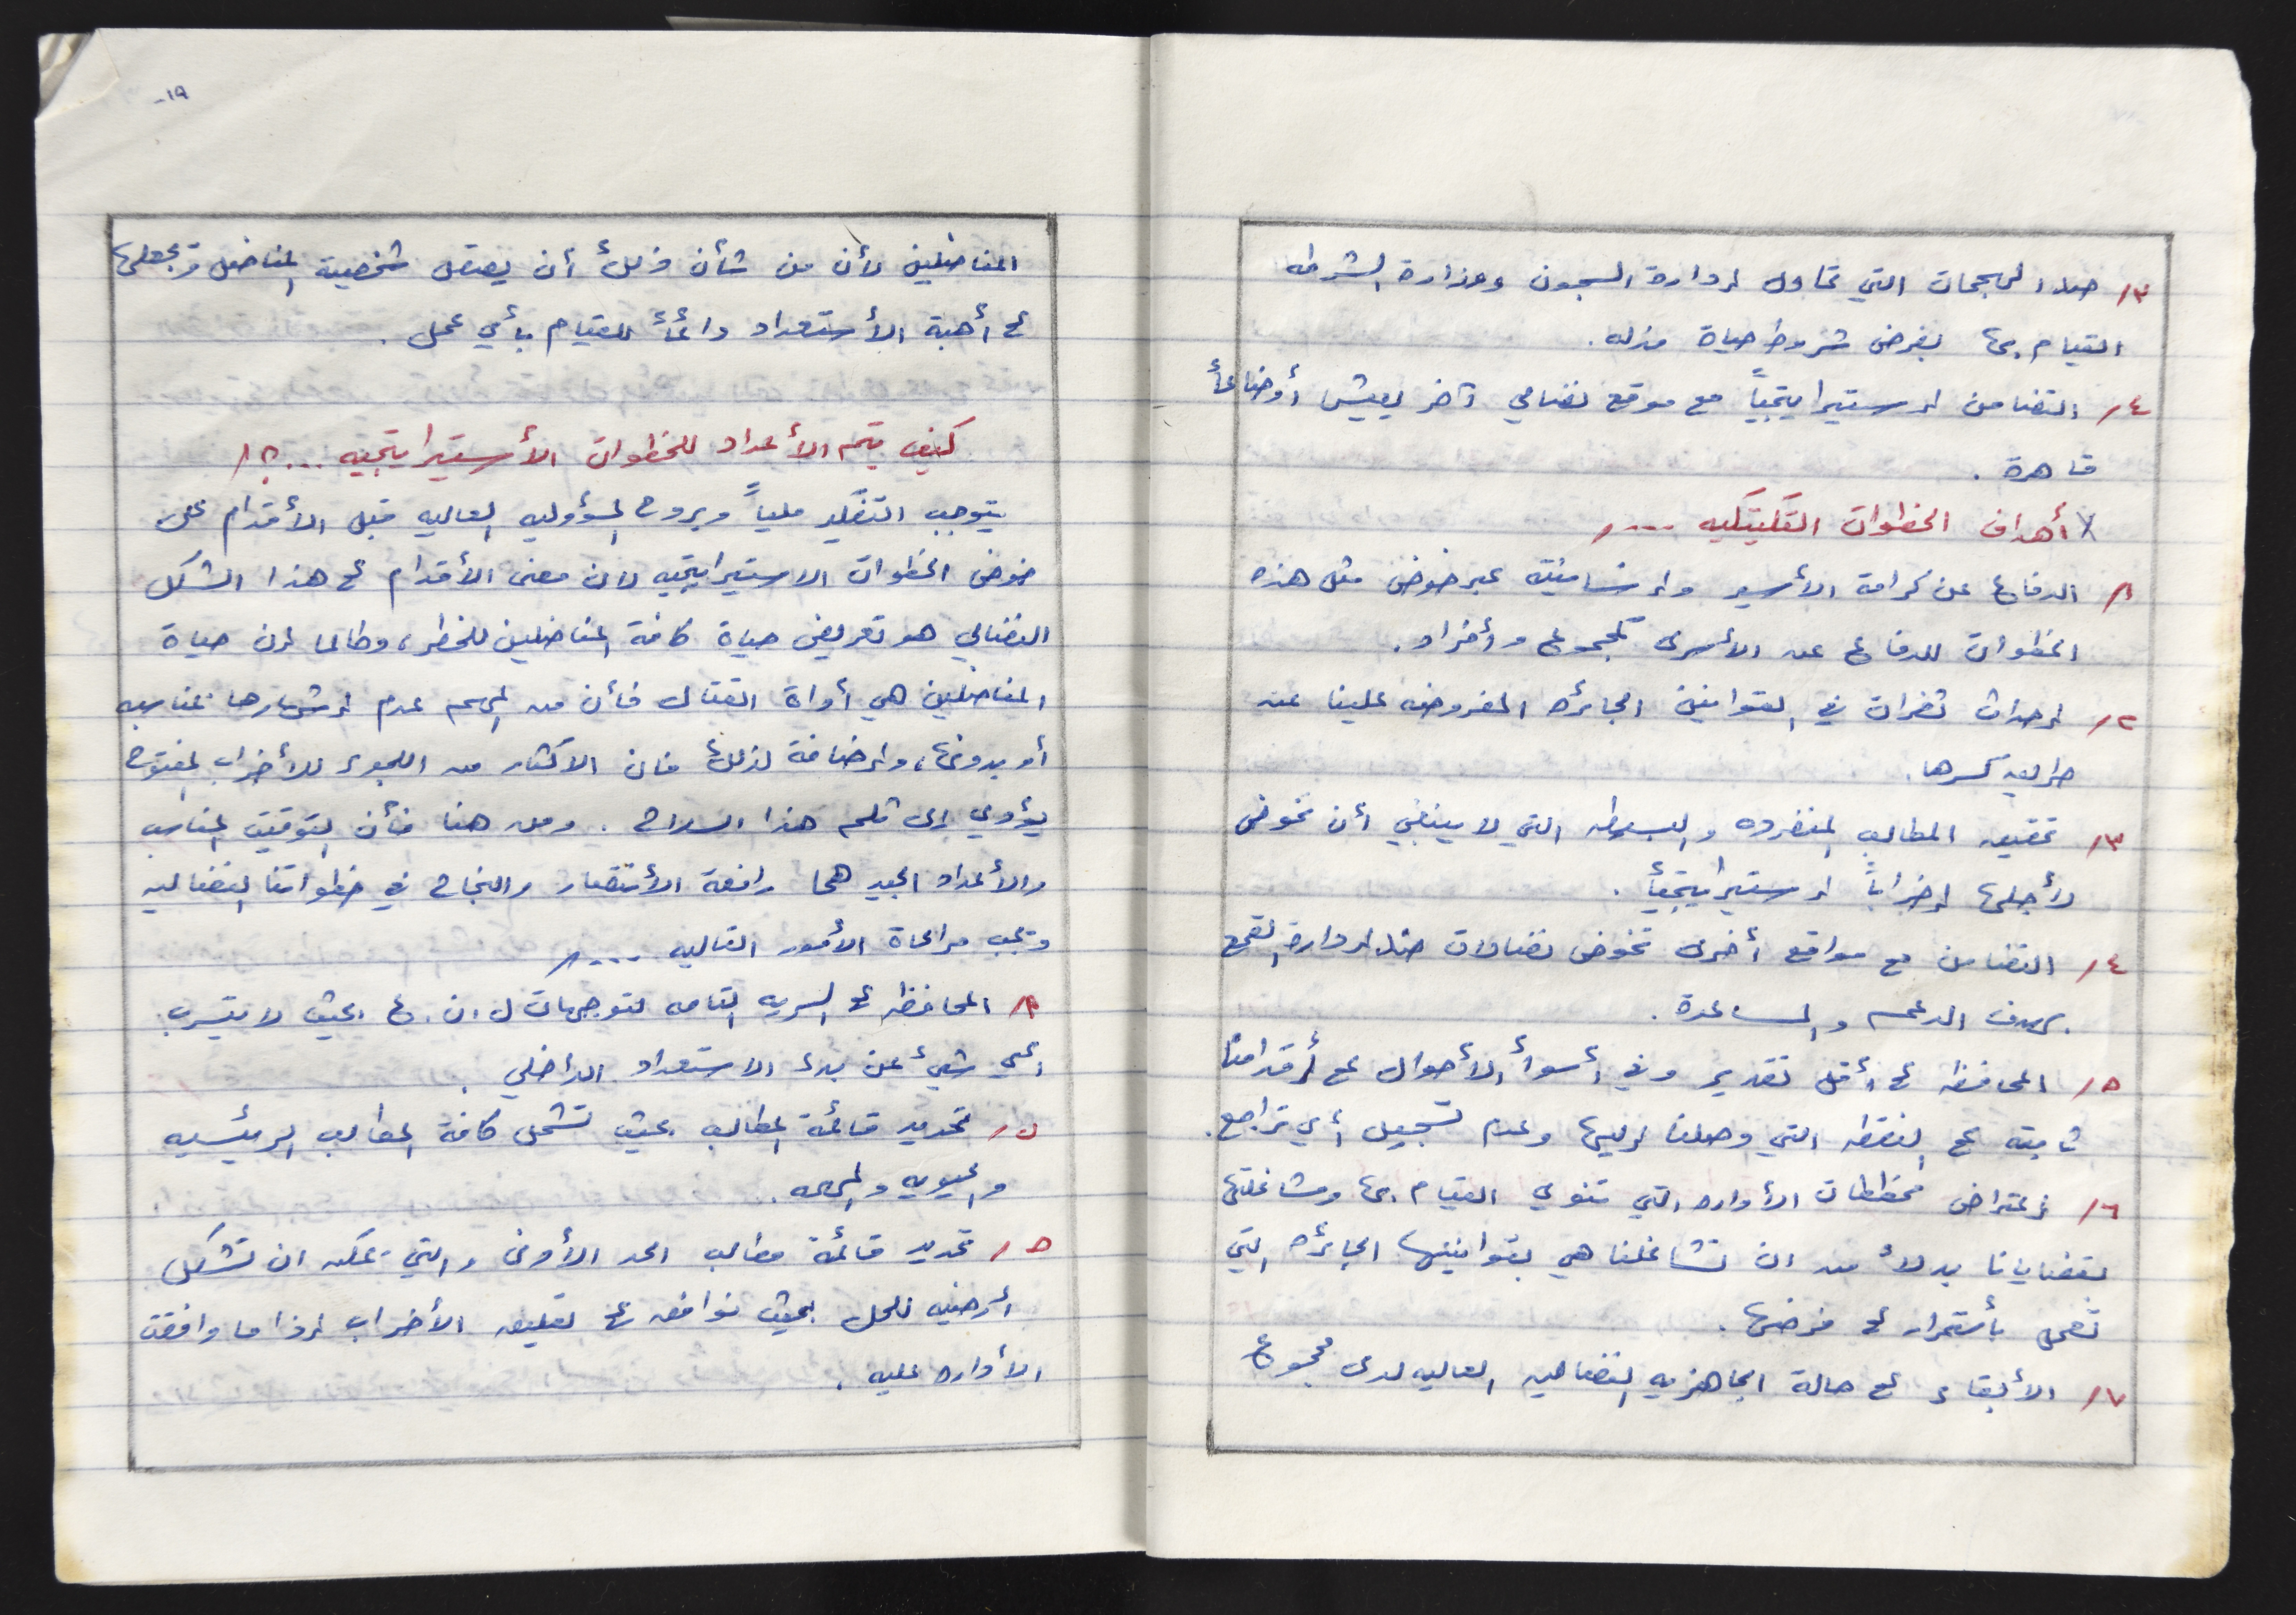 ٣/ صد الهجمات التي تحاول إدارة السجون ووزارة الشرطه
القيام بها بفرض شروط حياة مذله.
٤/ التضامن إستيراتيجياً مع موقع نضالي آخر يعيش أوضاعاً
قاهرة.
X أهداف الخطوات التكيتكيه ....
١/ الدفاع عن كرامة الأسير وإنسانيته عبر خوض مثل هذه
الخطوات للدفاع عن الأسرى كمجموع وأفراد.
٢/ إحداث ثغرات في القوانين الجائره المفروضه علينا عن
طريق كسرها.
٣/ تحقيق المطالب المنفرده والبسيطه التي لا ينبغي أن نخوض
لأجلها إضراباً إستيراتيجياً.
٤/ التضامن مع مواقع أخرى تخوض نضالات ضد إدارة القمع
بهدف الدعم والمساعدة.
٥/ المحافظه ع أقل تقدير وفي أسوأ الأحوال ع أقدامنا
ثابته ع النقطه التي وصلنا إليها وعدم تسجيل أي تراجع.
٦/ إعتراض مخططات الأداره التي تنوي القيام بها ومشاغلتها
بقضايانا بدلاً من ان تشاغلنا هي بقوانينها الجائره التي
تعمل بأستمرار ع فرضها.
٧/ الأبقاء ع حالة الجاهزيه النضاليه العاليه لدى مجموع
١٩-
المناضلين لأن من شأن ذلك أن يصقل شخصية المناضل ويجعلها
ع أهبة الأستعداد دائماً للقيام بأي عمل.
كيف يتم الأعداد للخطوات الأستيراتيجيه ...؟!
يتوجب التفكير ملياً وبروح المسؤوليه العاليه قبل الأقدام على
خوض الخطوات الاستيراتيجيه لان معنى الأقدام ع هذا الشكل
النضالي هو تعريض حياة كافة المناضلين للخطر، وطالما إن حياة
المناضلين هي أداة القتال فأن من المهم عدم إشهارها بمناسبه
أو بدونها، وإضافة لذلك فان الاكثار من اللجوء للأضراب المفتوح
يؤدي إلى تلم هذا السلاح. ومن هنا فأن التوقيت المناسب
والأعداد الجيد هما رافعة الأنتصار والنجاح في خطواتنا النضاليه
ويجب مراعاة الأمور التاليه ....
١/ المحافظه ع السريه التامه لتوجهات ل.ن.ع بحيث لا يتسرب
أي شيئ عن بدء الاستعداد الداخلي.
ب/ تحديد قائمة المطالب بحيث تشمل كافة المطالب الرئيسيه
والحيويه والمهمه.
ج/ تحديد قائمة مطالب الحد الأدنى والتي يمكن ان تشكل
أرضيه للحل بحيث نوافق ع تعليق الأضراب إذا ما وافقت
الأداره عليه.